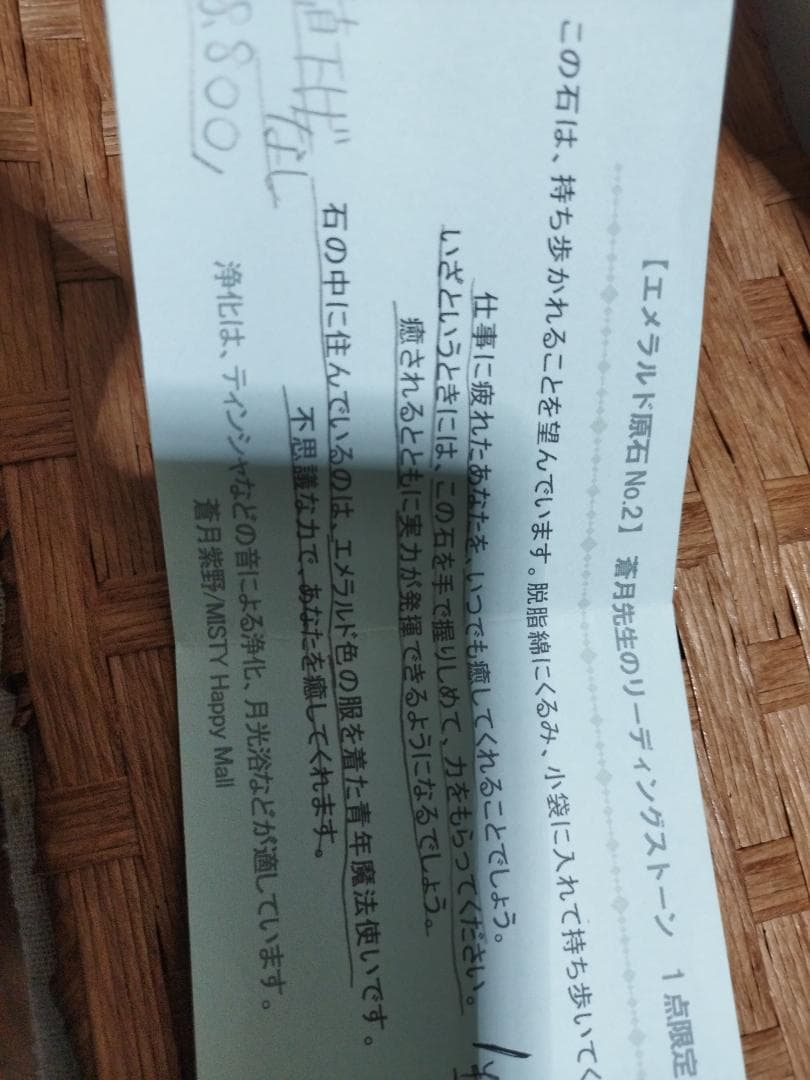 【エメラルド原石 No.2】 蒼月先生のリーディングストーン 1点限定
この石は、持ち歩かれることを望んでいます。脱脂綿にくるみ、小袋に入れて持ち歩いてく
仕事に疲れたあなたを、いつでも癒してくれることでしょう。
いざというときには、この石を手で握りしめて、力をもらってください。
癒されるとともに実力が発揮できるようになるでしょう。
石の中に住んでいるのは、エメラルド色の服を着た青年魔法使いです。
不思議な力で、あなたを癒してくれます。
浄化は、ティンシャなどの音による浄化、月光浴などが適しています。
蒼月紫野/MISTY Happy Mall
値下げ
なし
8,800